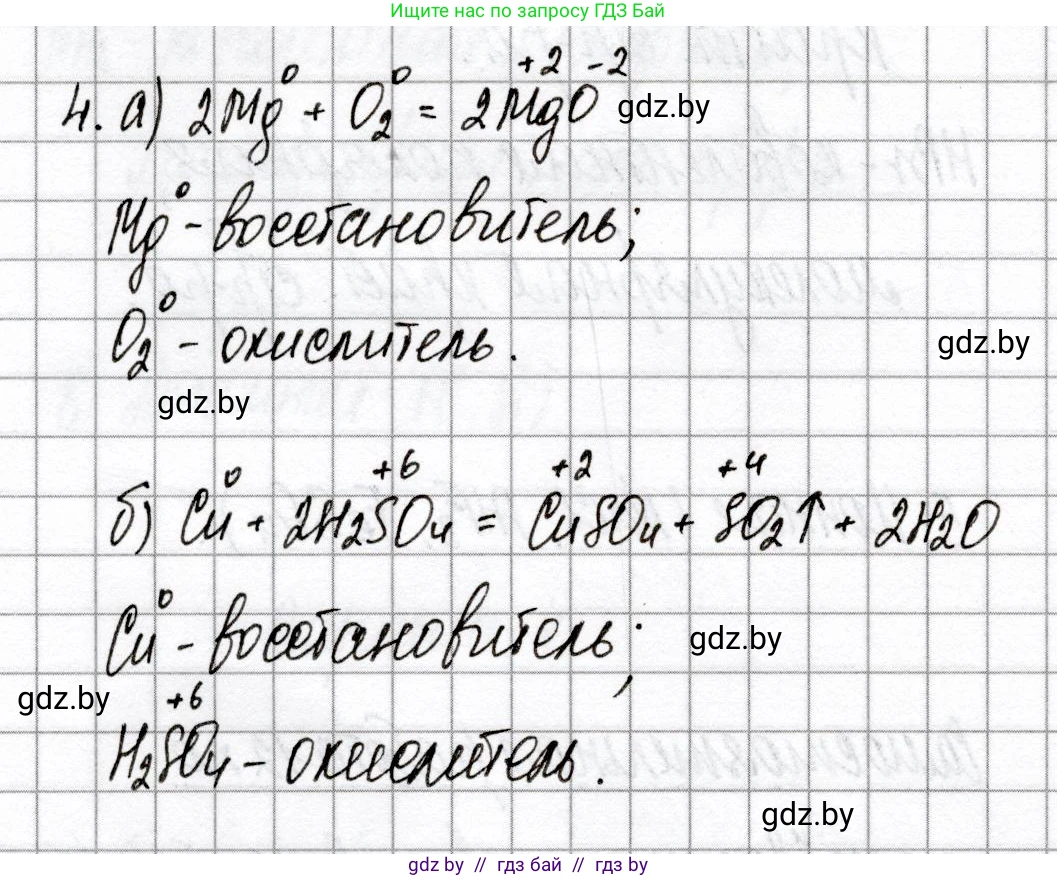 Ищите нас по запросу ГДЗ Бай
4. а) 2Mg⁰ + O₂⁰ = 2Mg⁺²O⁻² gdz.by
Mg⁰ - восстановитель;
O₂⁰ - окислитель. gdz.by
gdz.by
б) Cu⁰ + 2H₂S⁺⁶O₄ = Cu⁺²SO₄ + S⁺⁴O₂↑ + 2H₂O
Cu⁰ - восстановитель; gdz.by
gdz.by
H₂S⁺⁶O₄ - окислитель.
gdz.by
gdz by // гдз бай // гдз by